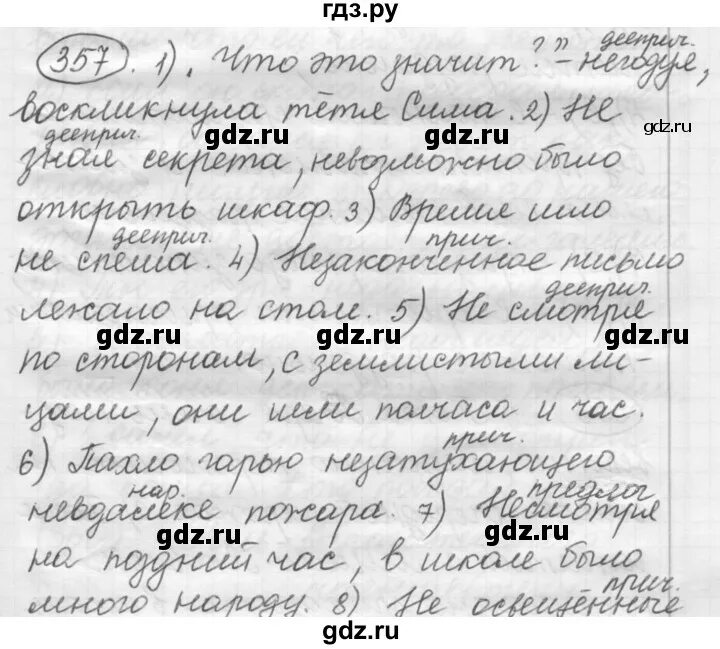 гдз.ру
357. 1) „Что это значит?" – негодуя,
дееприч.
воскликнула тётя Сима. 2) Не
дееприч.
зная секрета, невозможно было
открыть шкаф. 3) Время шло
дееприч. прич.
не спеша. 4) Незаконченное письмо
дееприч.
лежало на столе. 5) Не смотря
по сторонам, с землистыми ли-
цами, они шли полчаса и час.
прич.
6) Пахло гарью незатухающего
нар. предлог
невдалеке пожара. 7) Несмотря
на поздний час, в школе было
прич.
много народу. 8) Не освещённые
gdz.ru gdz.ru gdz.ru
gdz.ru gdz.ru gdz.ru
gdz.ru gdz.ru gdz.ru
gdz.ru gdz.ru gdz.ru
gdz.ru
gdz.ru